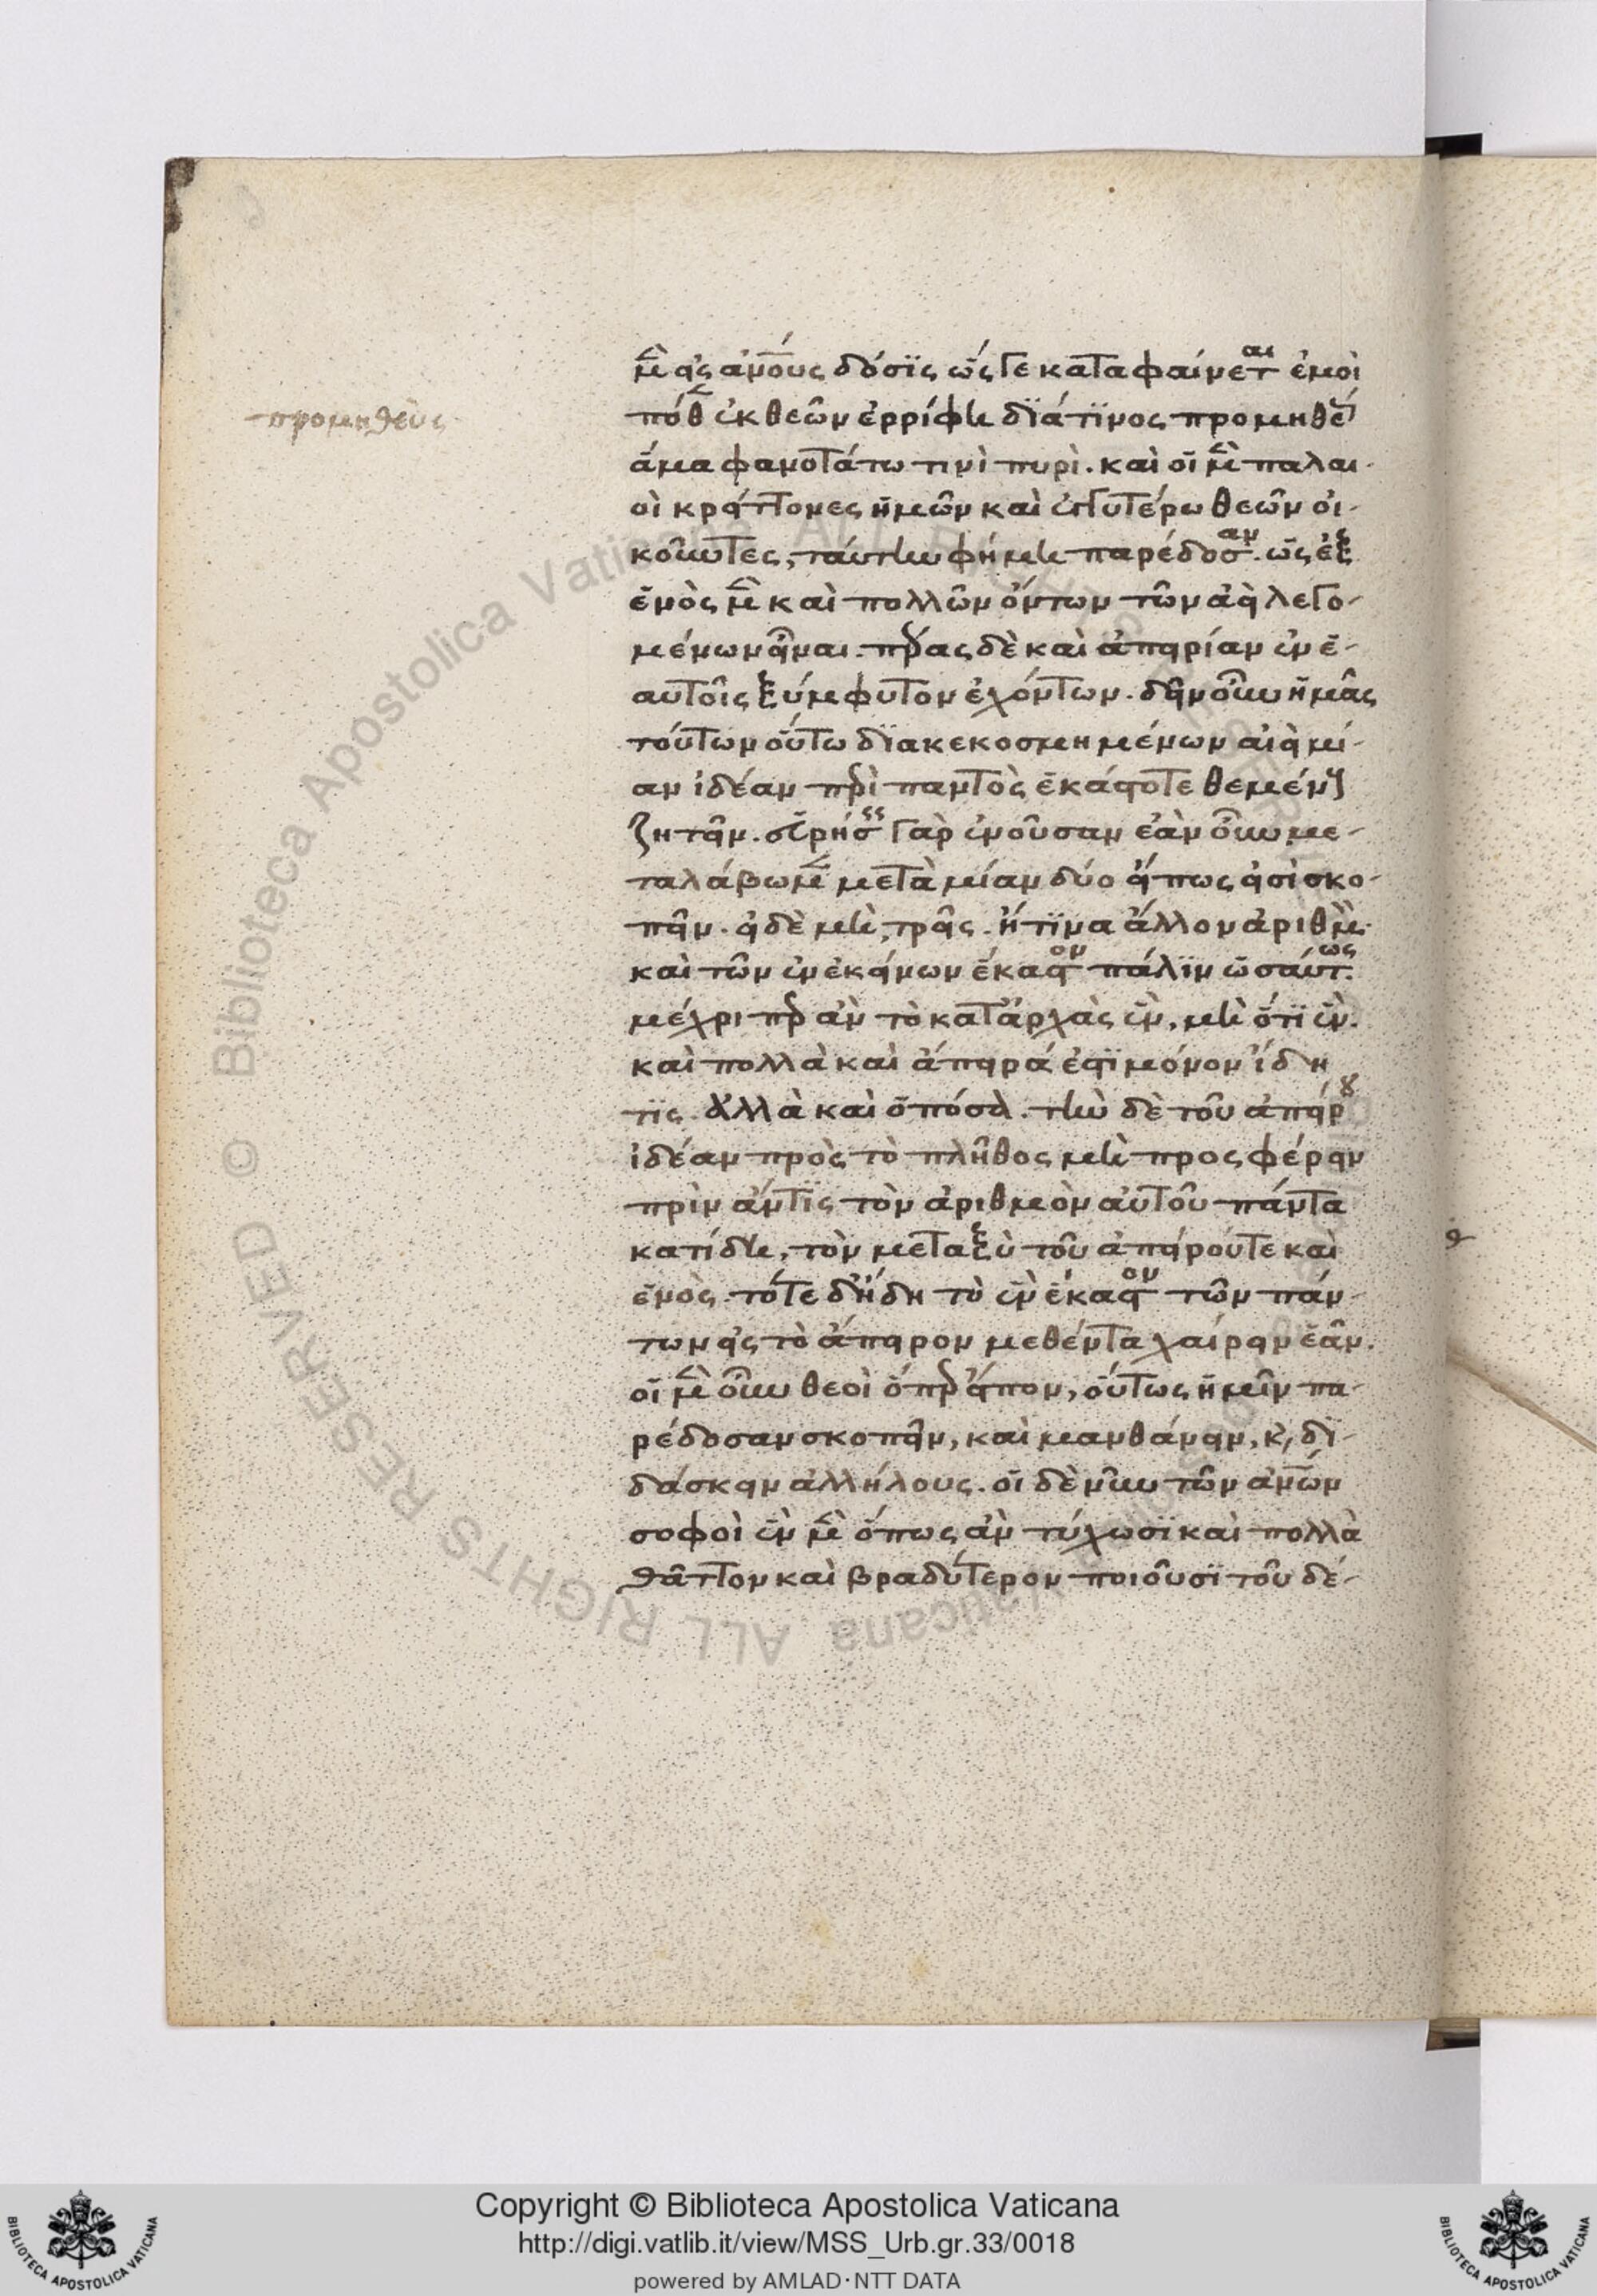 προμηθεὺς
μὲν εἰς ἀνους δόσϊς ὥς γε καταφαίνεται ἐμοὶ
πόθεν ἐκ θεῶν ἐρρίφη διά τινος προμηθέως
ἅμα φανοτάτω τινὶ πυρὶ. καὶ οἱ μὲν παλαι-
οὶ κρείττονες ἡμῶν καὶ ἐγγυτέρω θεῶν οἰ-
κοῦντες, ταύτην φήμην παρέδοσαν. ὡς ἐξ
ἑνὸς μὲν καὶ πολλῶν ὄντων τῶν ἀεὶ λεγο-
μένων εἶναι. πέρας δὲ καὶ ἀπειρίαν ἐν ἑ-
αυτοῖς ξύμφυτον ἐχόντων. δεῖν οὖν ἡμᾶς
τούτων οὕτω διακεκοσμημένων αἰεὶ μί-
αν ἰδέαν περὶ παντὸς ἑκάστοτε θεμένους
ζητεῖν. εὑρήσειν γὰρ ἐνοῦσαν ἐὰν οὖν με-
ταλάβωμεν μετὰ μίαν δύο εἴ πως εἰσὶ σκο-
πεῖν. εἰ δὲ μὴ, τρεῖς. ἤ τινα ἄλλον ἀριθμὸν.
καὶ τῶν ἐν ἐκείνων ἕκαστον πάλιν ὡσαύτως.
μέχρι περ ἂν τὸ κατ' ἀρχὰς ἓν, μὴ ὅτι ἓν.
καὶ πολλὰ καὶ ἄπειρά ἐστι μόνον ἴδη
τις. ἀλλὰ καὶ ὁπόσα. τὴν δὲ τοῦ ἀπείρου
ἰδέαν πρὸς τὸ πλῆθος μὴ προς φέρειν
πρὶν ἄν τις τὸν ἀριθμὸν αὐτοῦ πάντα
κατίδη, τὸν μεταξὺ τοῦ ἀπείρου τε καὶ
ἑνὸς. τότε δ' ἤδη τὸ ἓν ἕκαστον τῶν πάν-
των εἰς τὸ ἄπειρον μεθέντα χαίρειν ἐᾶν.
οἱ μὲν οὖν θεοὶ ὅπερ εἶπον, οὕτως ἡμῖν πα-
ρέδοσαν σκοπεῖν, καὶ μανθάνειν, κ, δι-
δάσκειν ἀλλήλους. οἱ δὲ νῦν τῶν ἀνων
σοφοὶ ἓν μὲν ὅπως ἂν τύχωσι καὶ πολλὰ
θᾶττον καὶ βραδύτερον ποιοῦσι τοῦ δέ-
Copyright © Biblioteca Apostolica Vaticana
http://digi.vatlib.it/view/MSS_Urb.gr.33/0018
powered by AMLAD·NTT DATA